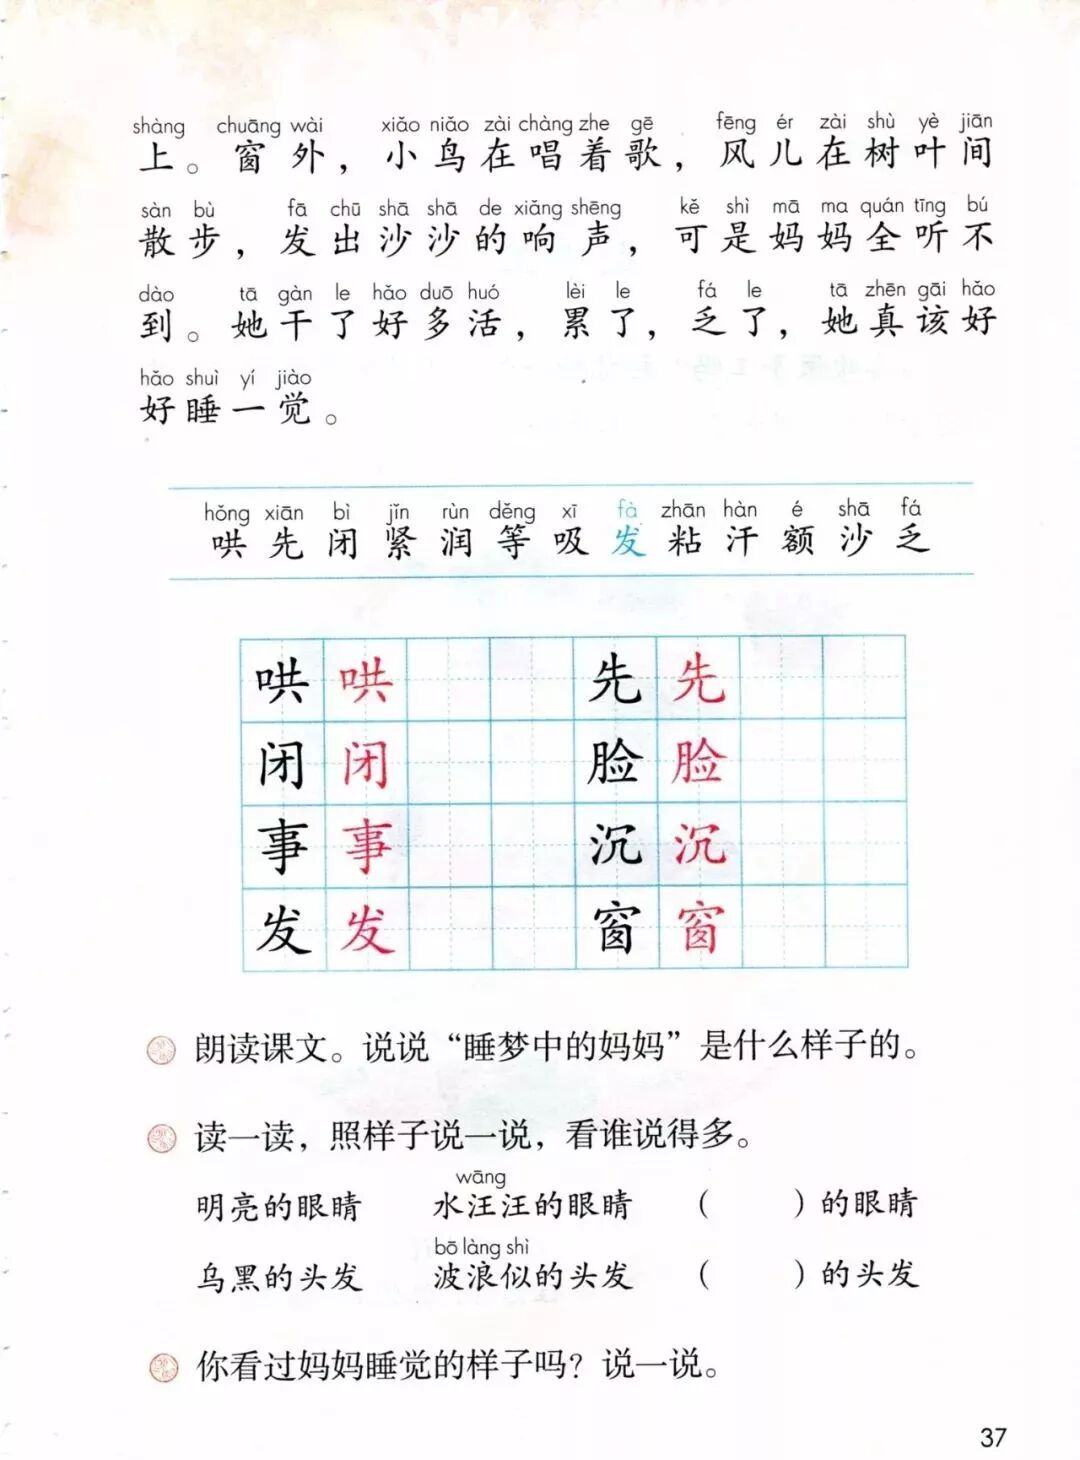 shàng chuāng wài xiǎo niǎo zài chàng zhe gē fēng ér zài shù yè jiān
上。窗外，小鸟在唱着歌，风儿在树叶间
sàn bù fā chū shā shā de xiǎng shēng kě shì mā ma quán tīng bú
散步，发出沙沙的响声，可是妈妈全听不
dào tā gàn le hǎo duō huó lèi le fá le tā zhēn gāi hǎo
到。她干了好多活，累了，乏了，她真该好
hǎo shuì yí jiào
好睡一觉。
hǒng xiān bì jǐn rùn děng xī fà zhān hàn é shā fá
哄先闭紧润等吸发粘汗额沙乏
哄 哄 先 先
闭 闭 脸 脸
事 事 沉 沉
发 发 窗 窗
朗读课文。说说“睡梦中的妈妈”是什么样子的。
读一读，照样子说一说，看谁说得多。
wāng
明亮的眼睛 水汪汪的眼睛 （ ）的眼睛
bō làng shì
乌黑的头发 波浪似的头发 （ ）的头发
你看过妈妈睡觉的样子吗？说一说。
37